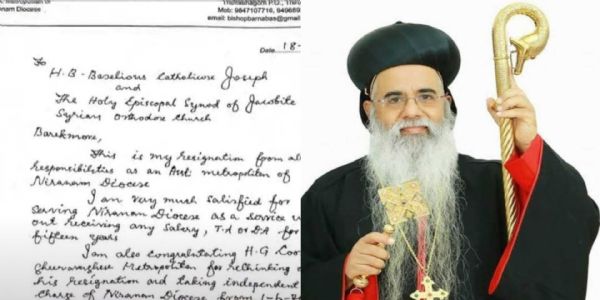 nam Diocese
Thiruvalla
P.O., Thiru
Mob: 9847107716, 949689
email: bishopbarnabas@gmail
Date 18-
To
H.B. Baselious Catholicose Joseph
and
The Holy Episcopal Synod of Jacobite
Syrian Orthodox Church
Barekmore,
This is my resignation from al
responsibilities as an Aux: metropolitan of
Niranam Diocese
I am very much satisfied for
Serving Niranam Diocese as a service
out receiving any Salary, T.A or D.A for
fifteen years
I am also congratulating H.G. Coo
Metropolitan for rethinking
his resignation and taking independent
Charge of Niranam Diocese from 1-6-